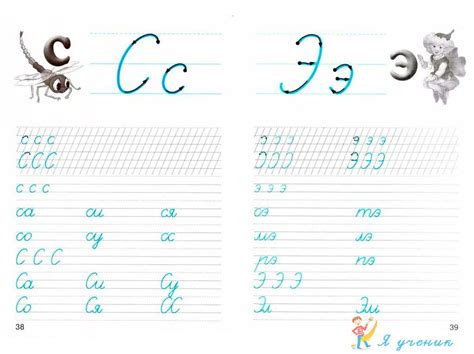 с
Сс
с с с
С С С
с с с
са си ся
со су сс
С С С
Са Си Су
Со Ся СС
38
Ээ
э
э э э э э э
Э Э Э Э Э Э
э э э э
сэ тэ
мэ лэ
рэ пэ
Э Э Э
39
Я ученик